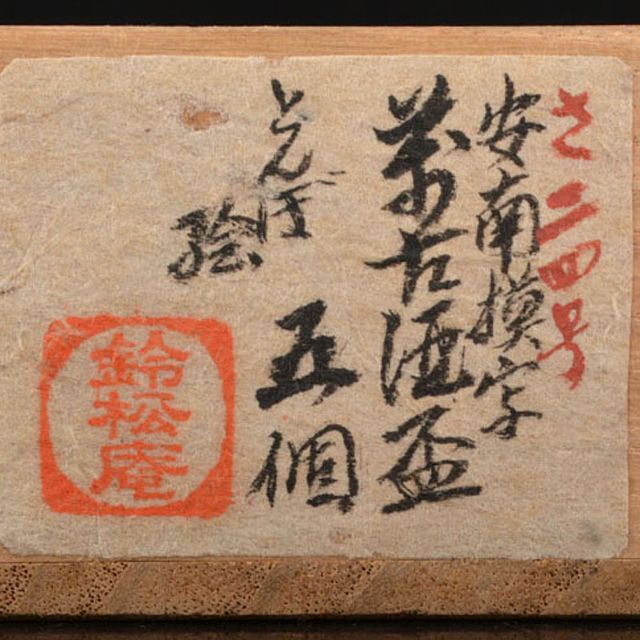 さ二四号
安南模字
萬古酒盃
とんぼ
絵
五個
鈴松庵